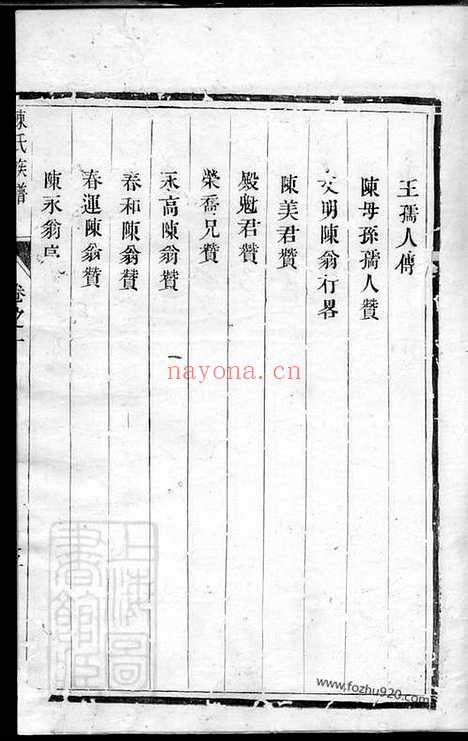 王孺人傳
陳母孫孺人贊
文明陳翁行畧
陳美君贊
殿魁君贊
榮喬兄贊
永高陳翁贊
春和陳翁贊
春運陳翁贊
陳永翁
陳氏族譜
卷之一
nayona.cn
上海圖書館藏
www.fozhu920.com